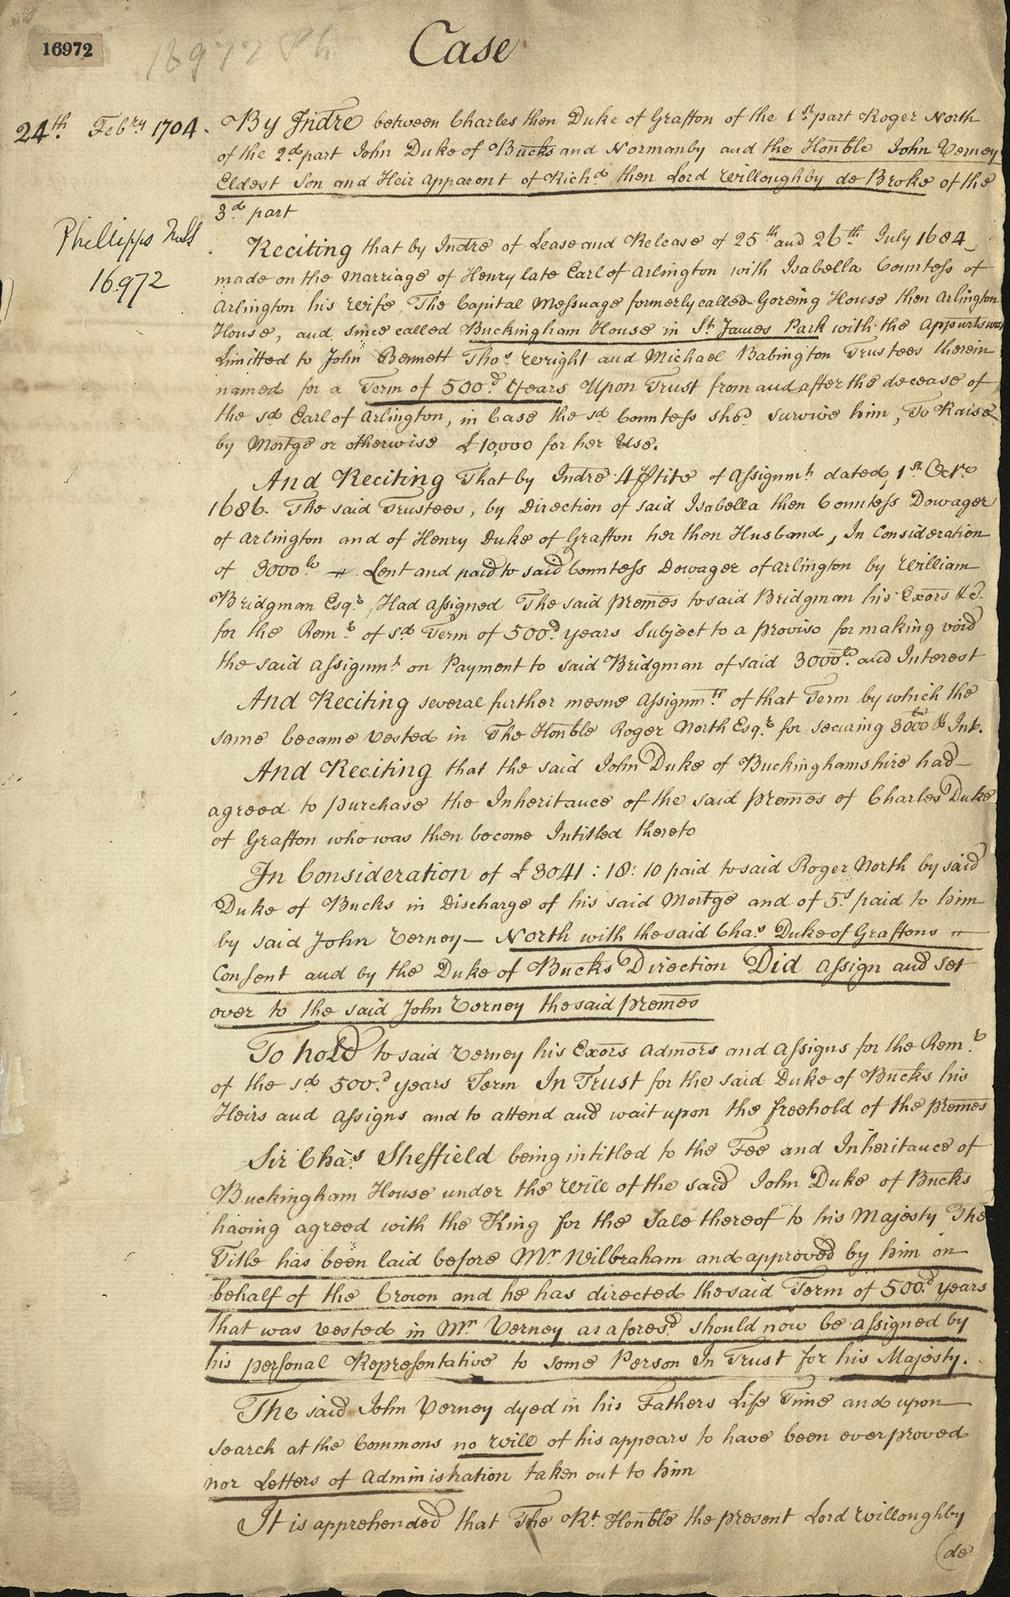 16972
16972 Ph
Case
24th Febry 1704.
By Indre between Charles then Duke of Grafton of the 1st part Roger North
of the 2d part John Duke of Bucks and Normanby and the Honble John Verney
Eldest Son and Heir Apparent of Richd then Lord Willoughby de Broke of the
3d part
Phillipps Mss
16972
Reciting that by Indre of Lease and Release of 25th and 26th July 1684
made on the Marriage of Henry late Earl of Arlington with Isabella Countess of
Arlington his Wife The Capital Messuage formerly called Goreing House then Arlington
House, and since called Buckingham House in St James Park with the Appurts was
Limitted to John Bennett Thos Wright and Michael Babington Trustees therein
named for a Term of 500d Years Upon Trust from and after the decease of
the sd Earl of Arlington, in Case the sd Countess shod survive him, To Raise
by Mortge or otherwise £10,000 for her Use.
And Reciting That by Indre 4ptite of Assignmt dated 1st Octr
1686. The said Trustees, by Direction of said Isabella then Countess Dowager
of Arlington and of Henry Duke of Grafton her then Husband, In Consideration
of 3000lb Lent and paid to said Countess Dowager of Arlington by William
Bridgman Esqr, Had Assigned The said premes to said Bridgman his Exors &c.
for the Remr of sd Term of 500d years Subject to a proviso for making void
the said Assignmt on Payment to said Bridgman of said 3000lb. and Interest
And Reciting several further mesne Assignmts of that Term by which the
same became vested in The Honble Roger North Esqr for securing 3000lb & Int.
And Reciting that the said John Duke of Buckinghamshire had
agreed to purchase the Inheritance of the said premes of Charles Duke
of Grafton who was then become Intitled thereto
In Consideration of £3041 : 18 : 10 paid to said Roger North by said
Duke of Bucks in Discharge of his said Mortge and of 5s paid to him
by said John Verney — North with the said Chas Duke of Graftons
Consent and by the Duke of Bucks Direction Did Assign and set
over to the said John Verney the said premes
To hold to said Verney his Exors Admors and Assigns for the Remr
of the sd 500d years Term In Trust for the said Duke of Bucks his
Heirs and Assigns and to attend and wait upon the freehold of the premes
Sir Chas Sheffield being intitled to the Fee and Inheritance of
Buckingham House under the Will of the said John Duke of Bucks
having agreed with the King for the Sale thereof to his Majesty The
Title has been laid before Mr Wilbraham and approved by him on
behalf of the Crown and he has directed the said Term of 500d years
that was vested in Mr Verney as aforesd should now be assigned by
his personal Representative to some Person In Trust for his Majesty.
The said John Verney dyed in his Fathers Life Time and upon
search at the Commons no Will of his appears to have been ever proved
nor Letters of Administration taken out to him
It is apprehended that The Rt Honble the present Lord Willoughby
de